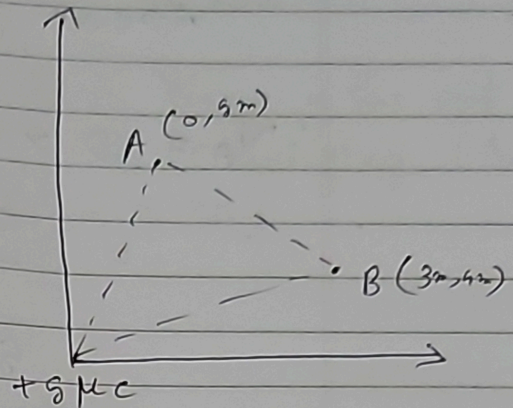 A (0,5m)
B (3m,4m)
+5 μc